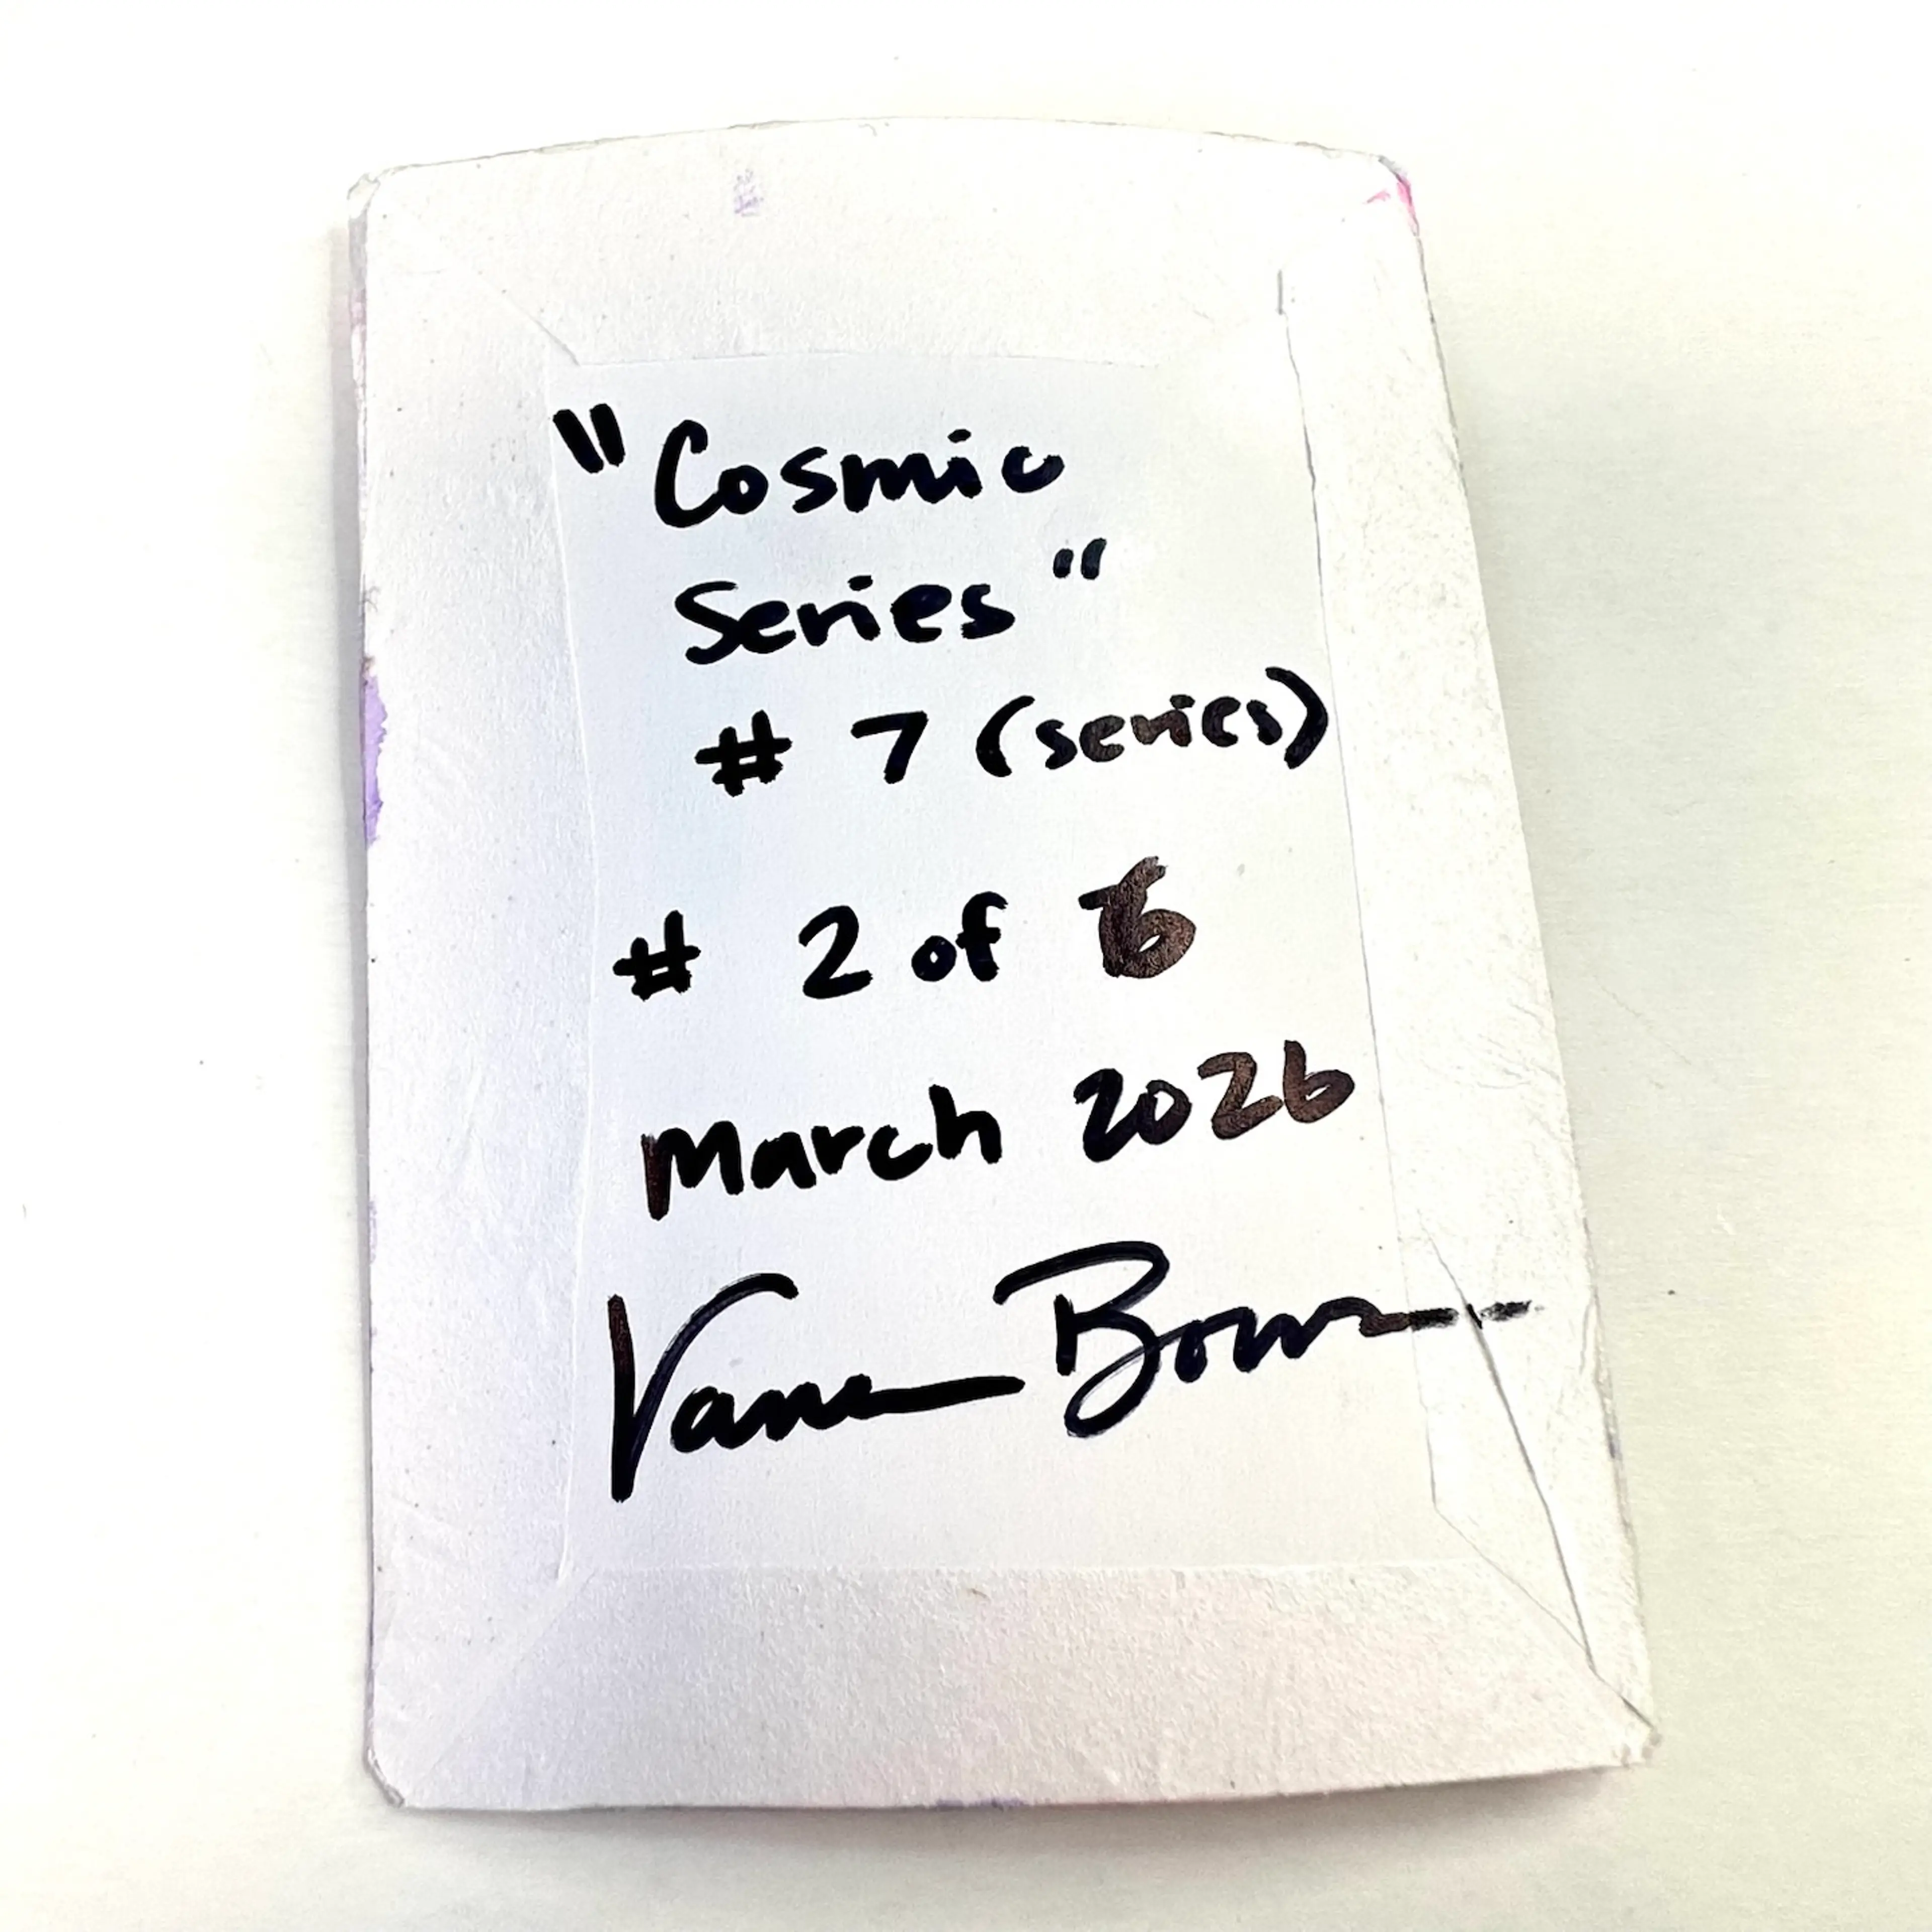 "Cosmic
Series"
# 7 (series)
# 2 of 6
March 2026